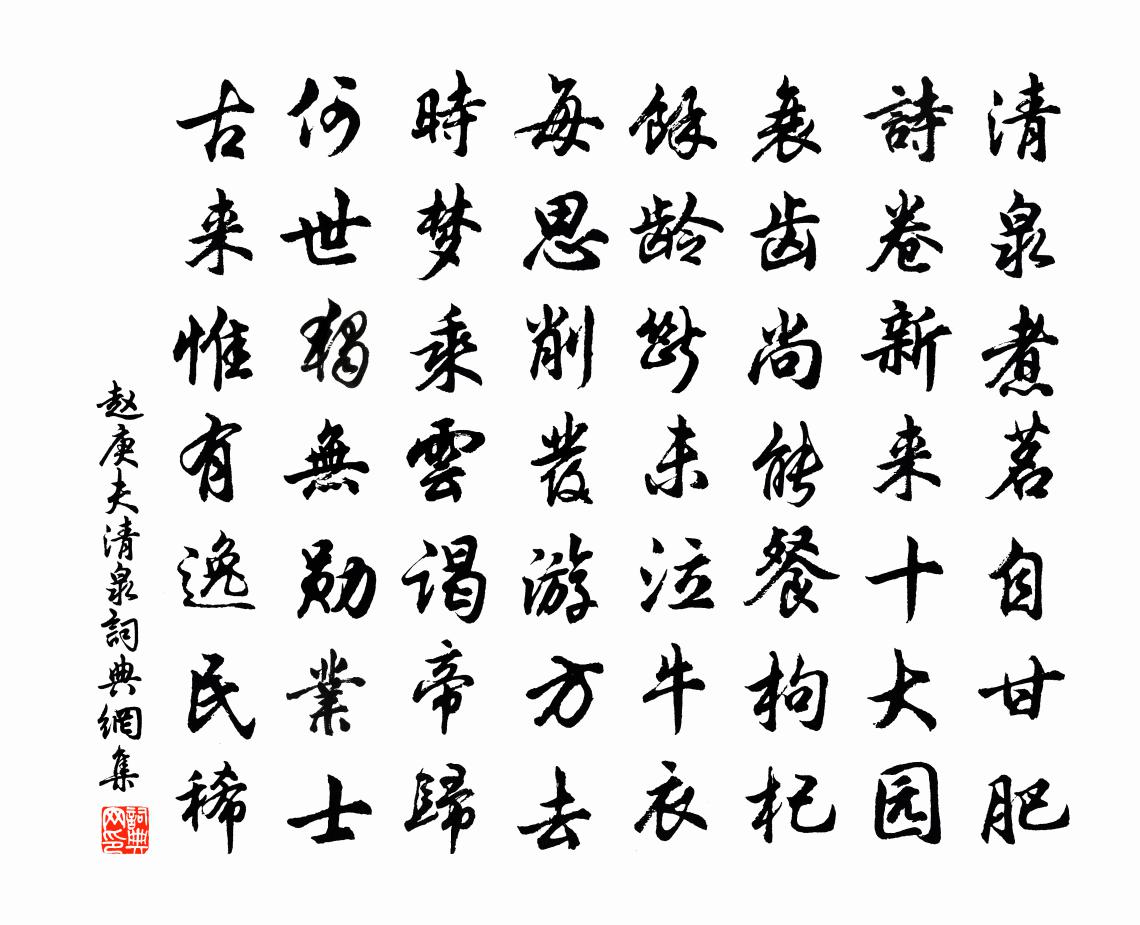 清泉煮茗自甘肥
詩卷新来十大园
衰齿尚能餐枸杞
餘龄断未泣牛衣
每思削發游方去
時梦乘雲谒帝歸
何世獨無勋業士
古来惟有逸民稀
赵庚夫清泉詞典網集
詞典网印